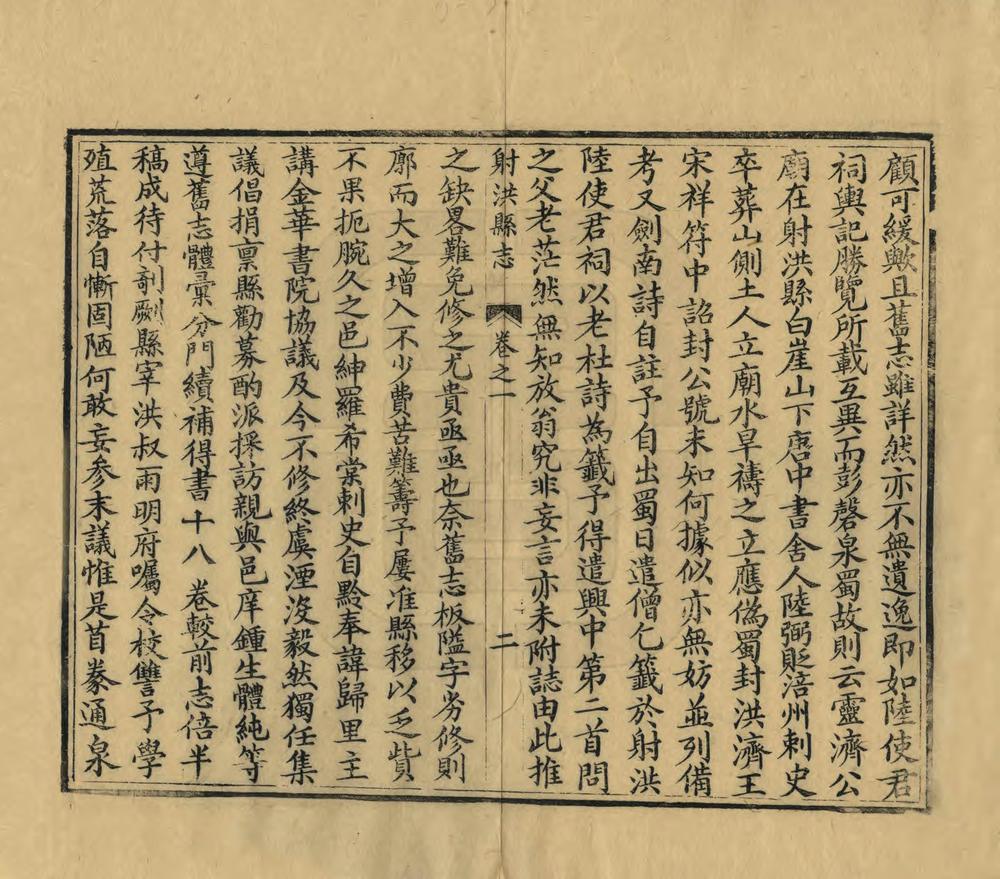 顧可緩歟且舊志雖詳然亦不無遺逸即如陸使君
祠輿記勝覽所載互異而彭磬泉蜀故則云靈濟公
廟在射洪縣白崖山下唐中書舍人陸弼貶涪州刺史
卒葬山側土人立廟水旱禱之立應僞蜀封洪濟王
宋祥符中詔封公號未知何據似亦無妨並列備
考又劍南詩自註予自出蜀日遣僧乞籤於射洪
陸使君祠以老杜詩為籤予得遣興中第二首問
之父老茫然無知放翁究非妄言亦未附誌由此推
射洪縣志 卷之一 二
之缺畧難免修之尤貴亟亟也奈舊志板隘字劣修則
廓而大之增入不少費苦難籌予屢准縣移以乏貲
不果扼腕久之邑紳羅希棠刺史自黔奉諱歸里主
講金華書院協議及今不修終虞湮没毅然獨任集
議倡捐稟縣勸募酌派採訪親與邑庠鍾生體純等
遵舊志體彙分門續補得書十八卷較前志倍半
稿成待付剞劂縣宰洪叔雨明府囑令校讐予學
殖荒落自慚固陋何敢妄參末議惟是首豢通泉